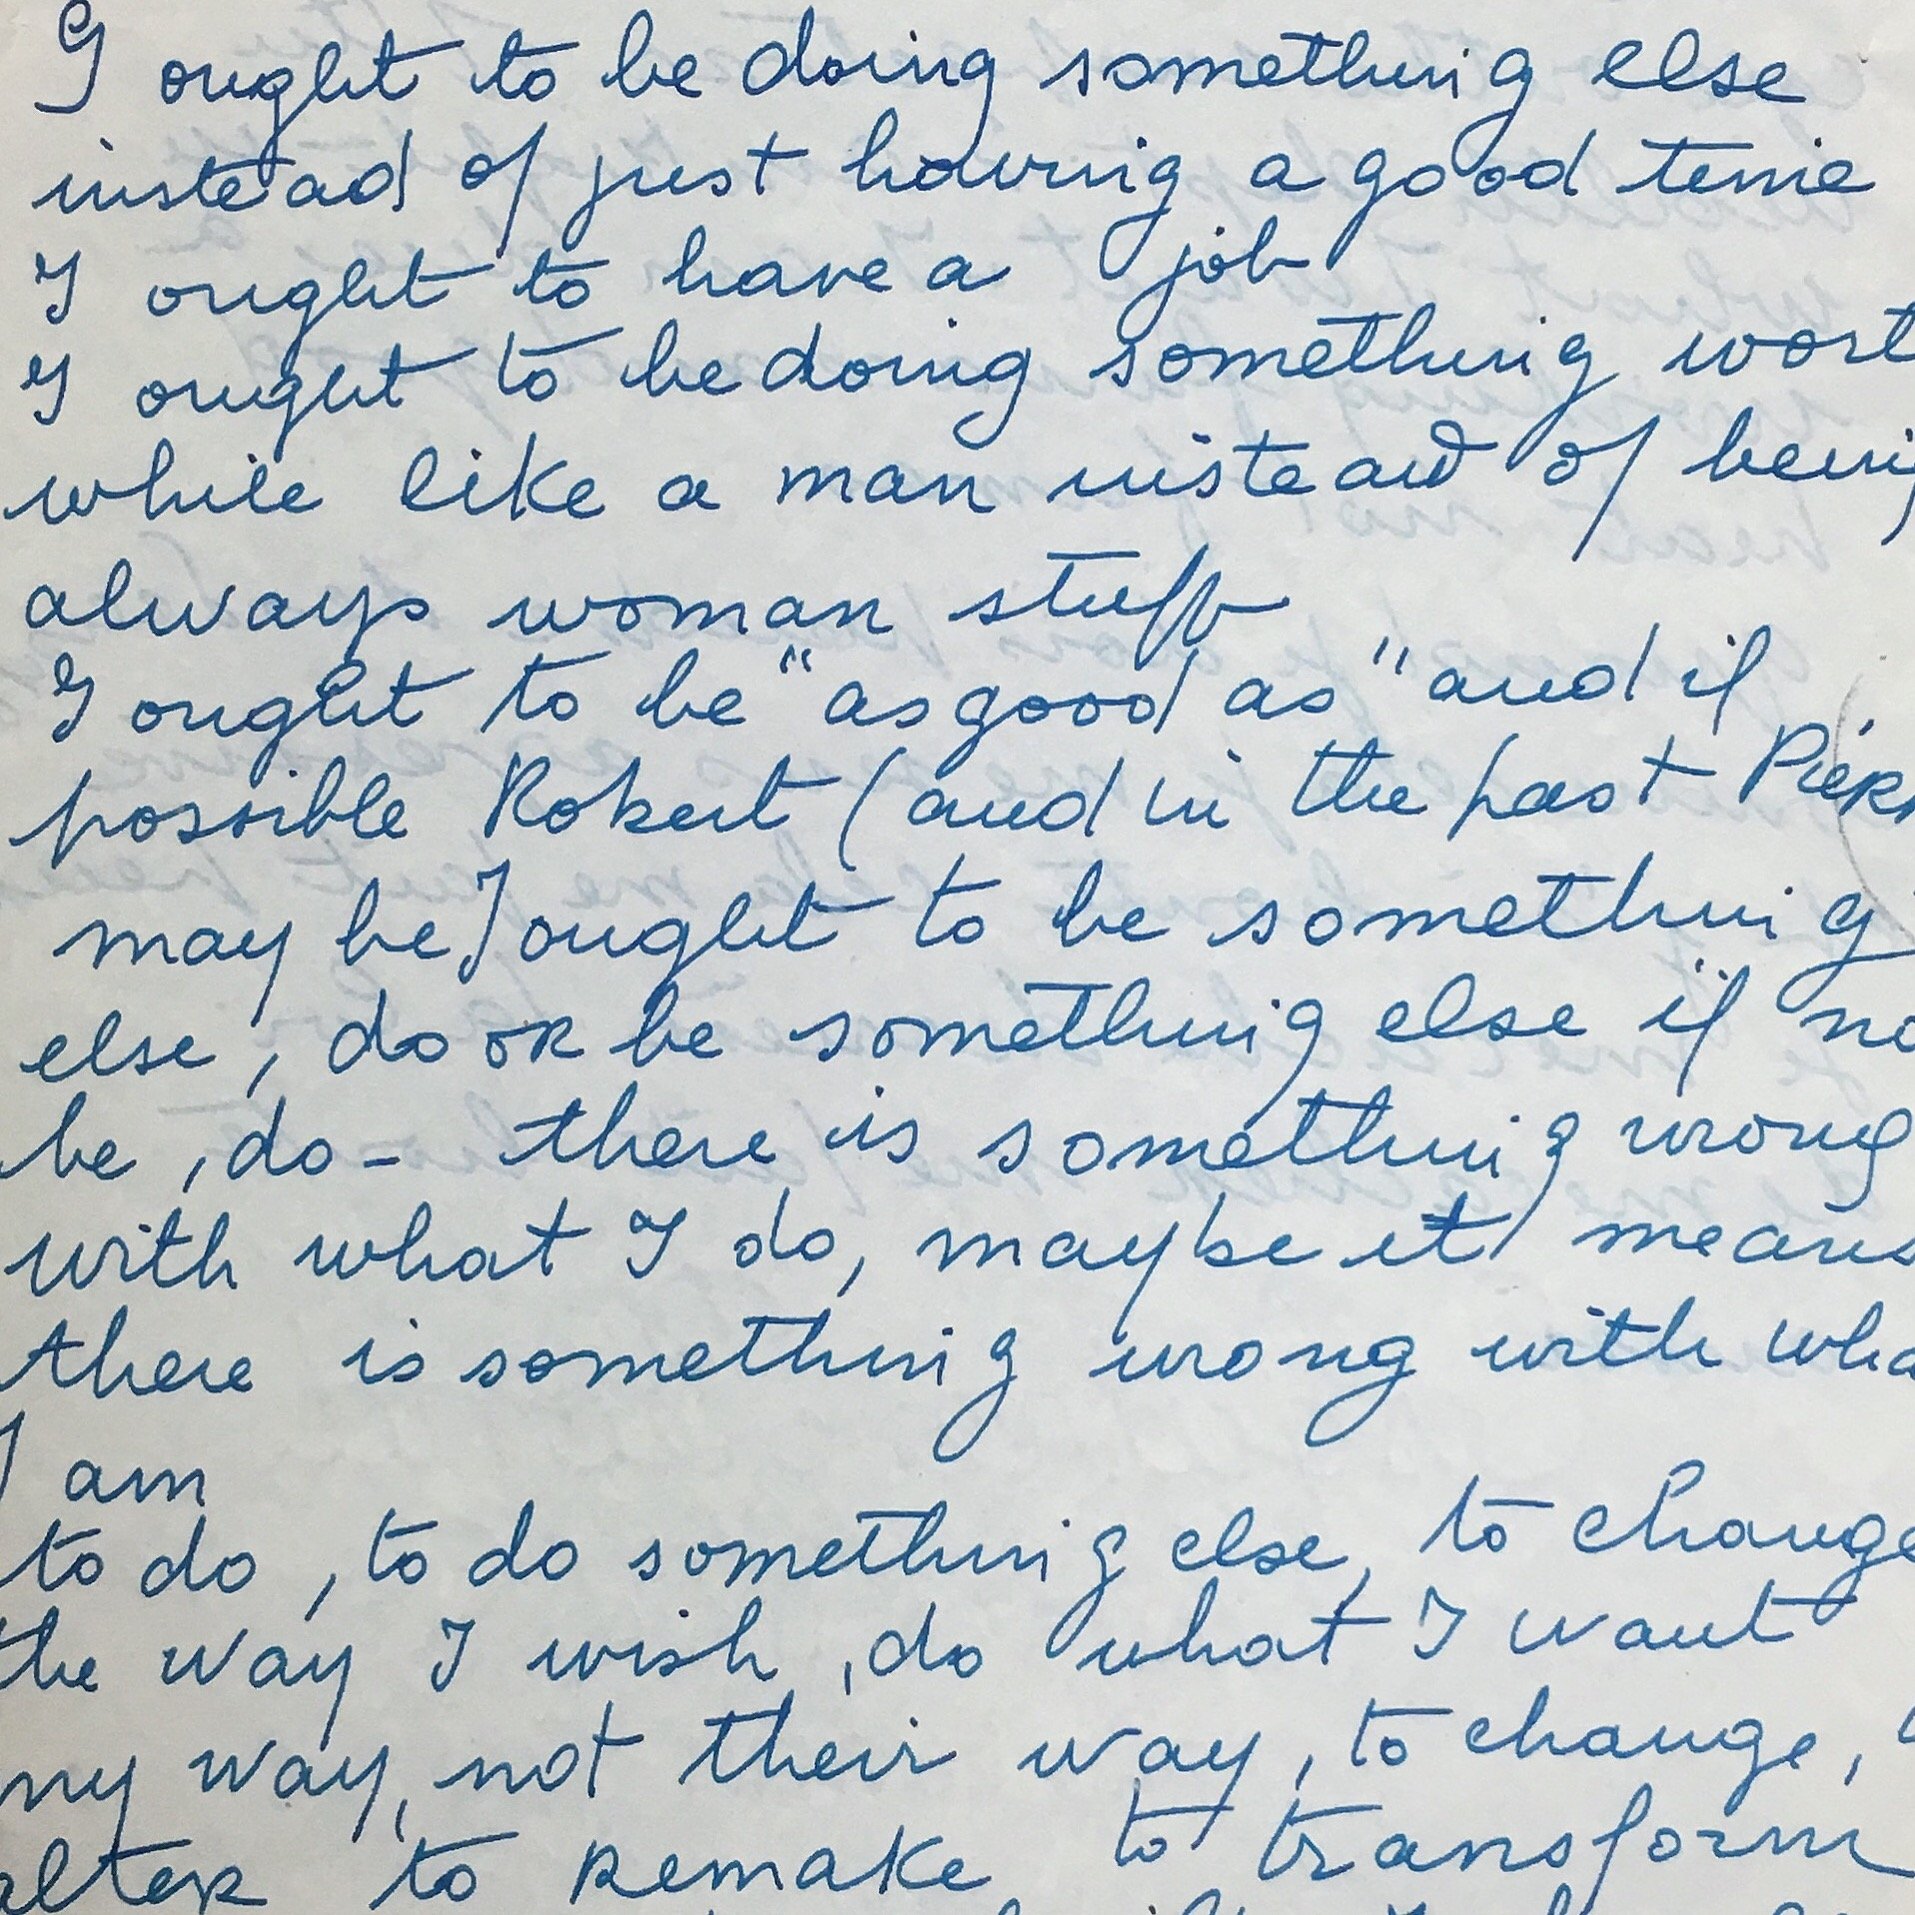 I ought to be doing something else
instead of just having a good time
I ought to have a job
I ought to be doing something wort
while like a man instead of being
always woman stuff
I ought to be "as good as" and if
possible Robert (and in the past Pierr
may be I ought to be something
else, do or be something else if no
be, do - there is something wrong
with what I do, maybe it means
there is something wrong with wha
I am
to do, to do something else, to change
the way I wish, do what I want
my way, not their way, to change,
alter to remake to transform